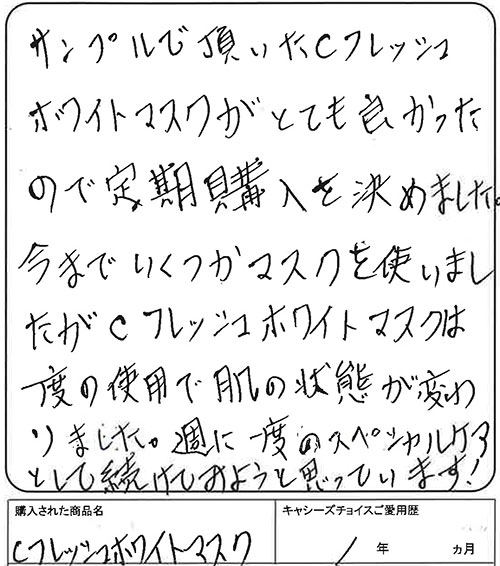 サンプルで頂いたCフレッシュ
ホワイトマスクがとても良かった
ので定期購入を決めました。
今までいくつかマスクを使いまし
たがCフレッシュホワイトマスクは
一度の使用で肌の状態が変わ
りました。週に一度のスペシャルケア
として続けてみようと思っています!
購入された商品名
キャシーズチョイスご愛用歴
Cフレッシュホワイトマスク
1年 ヵ月